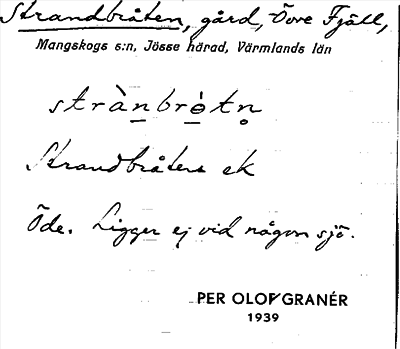 Strandbråten, gård, Övre Fjäll,
Mangskogs s:n, Jösse härad, Värmlands län
strànbrò̠tn̥
Strandbråten ek
Öde. Ligger ej vid någon sjö.
PER OLOF GRANÉR
1939